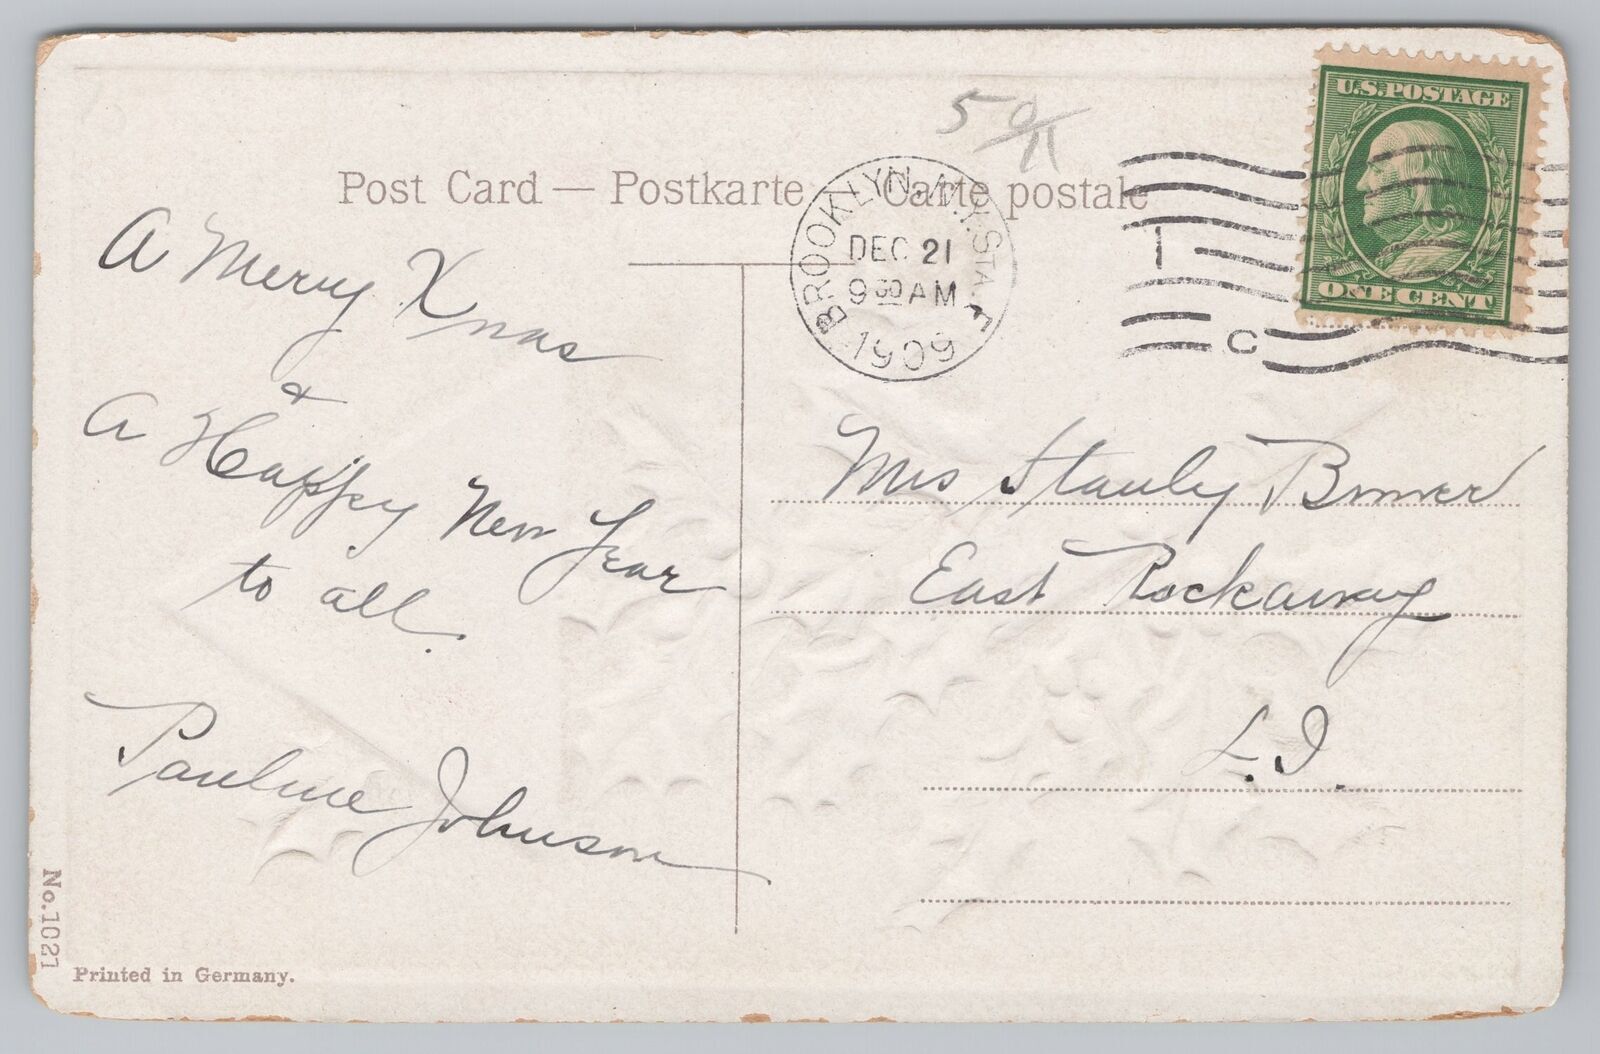 5 0/11
Post Card — Postkarte. Carte postale
U.S. POSTAGE
ONE CENT
BROOKLYN, N.Y. STA. F
DEC 21
9 30 AM
1909
1
C
A Merry Xmas
&
A Happy New Year
to all.
Pauline Johnson
Mrs Stanly
East Rockaway
L.I.
No. 1021
Printed in Germany.